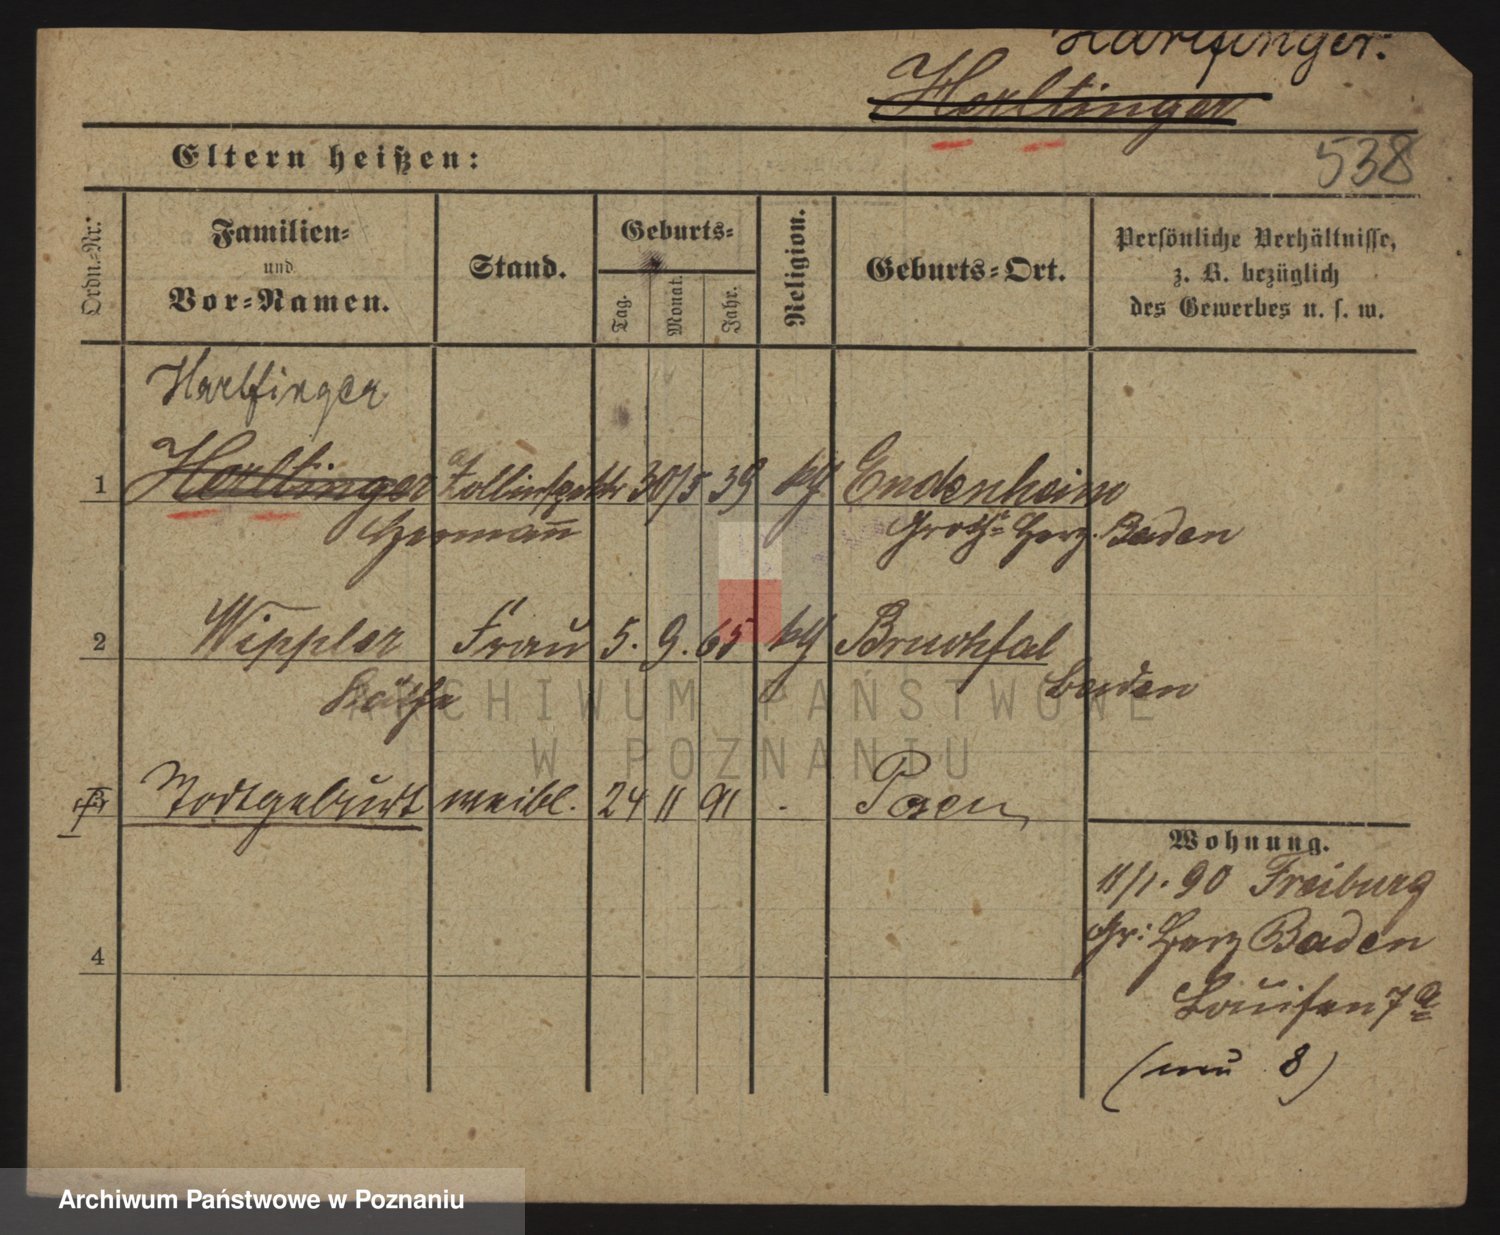 Hartfinger.
Horltinger
538
Eltern heißen:
Ordn.-Nr.
Familien-
und
Vor-Namen.
Stand.
Geburts-
Tag.
Monat.
Jahr.
Religion.
Geburts-Ort.
Persönliche Verhältnisse,
z. B. bezüglich
des Gewerbes u. s. w.
Hartfinger
1 Horltinger 30/5 39 Endenheim
Hermann Baden
2 Wippler Frau 5. 9. 65 Bruchsal
Käthe Baden
3 Todtgeburt weibl. 24 11 91 - Posen
Wohnung.
11/1. 90 Freiburg
Gr: Herz Baden
Louisen 7a
(neu 8)
4
ARCHIWUM PAŃSTWOWE
W POZNANIU
Archiwum Państwowe w Poznaniu